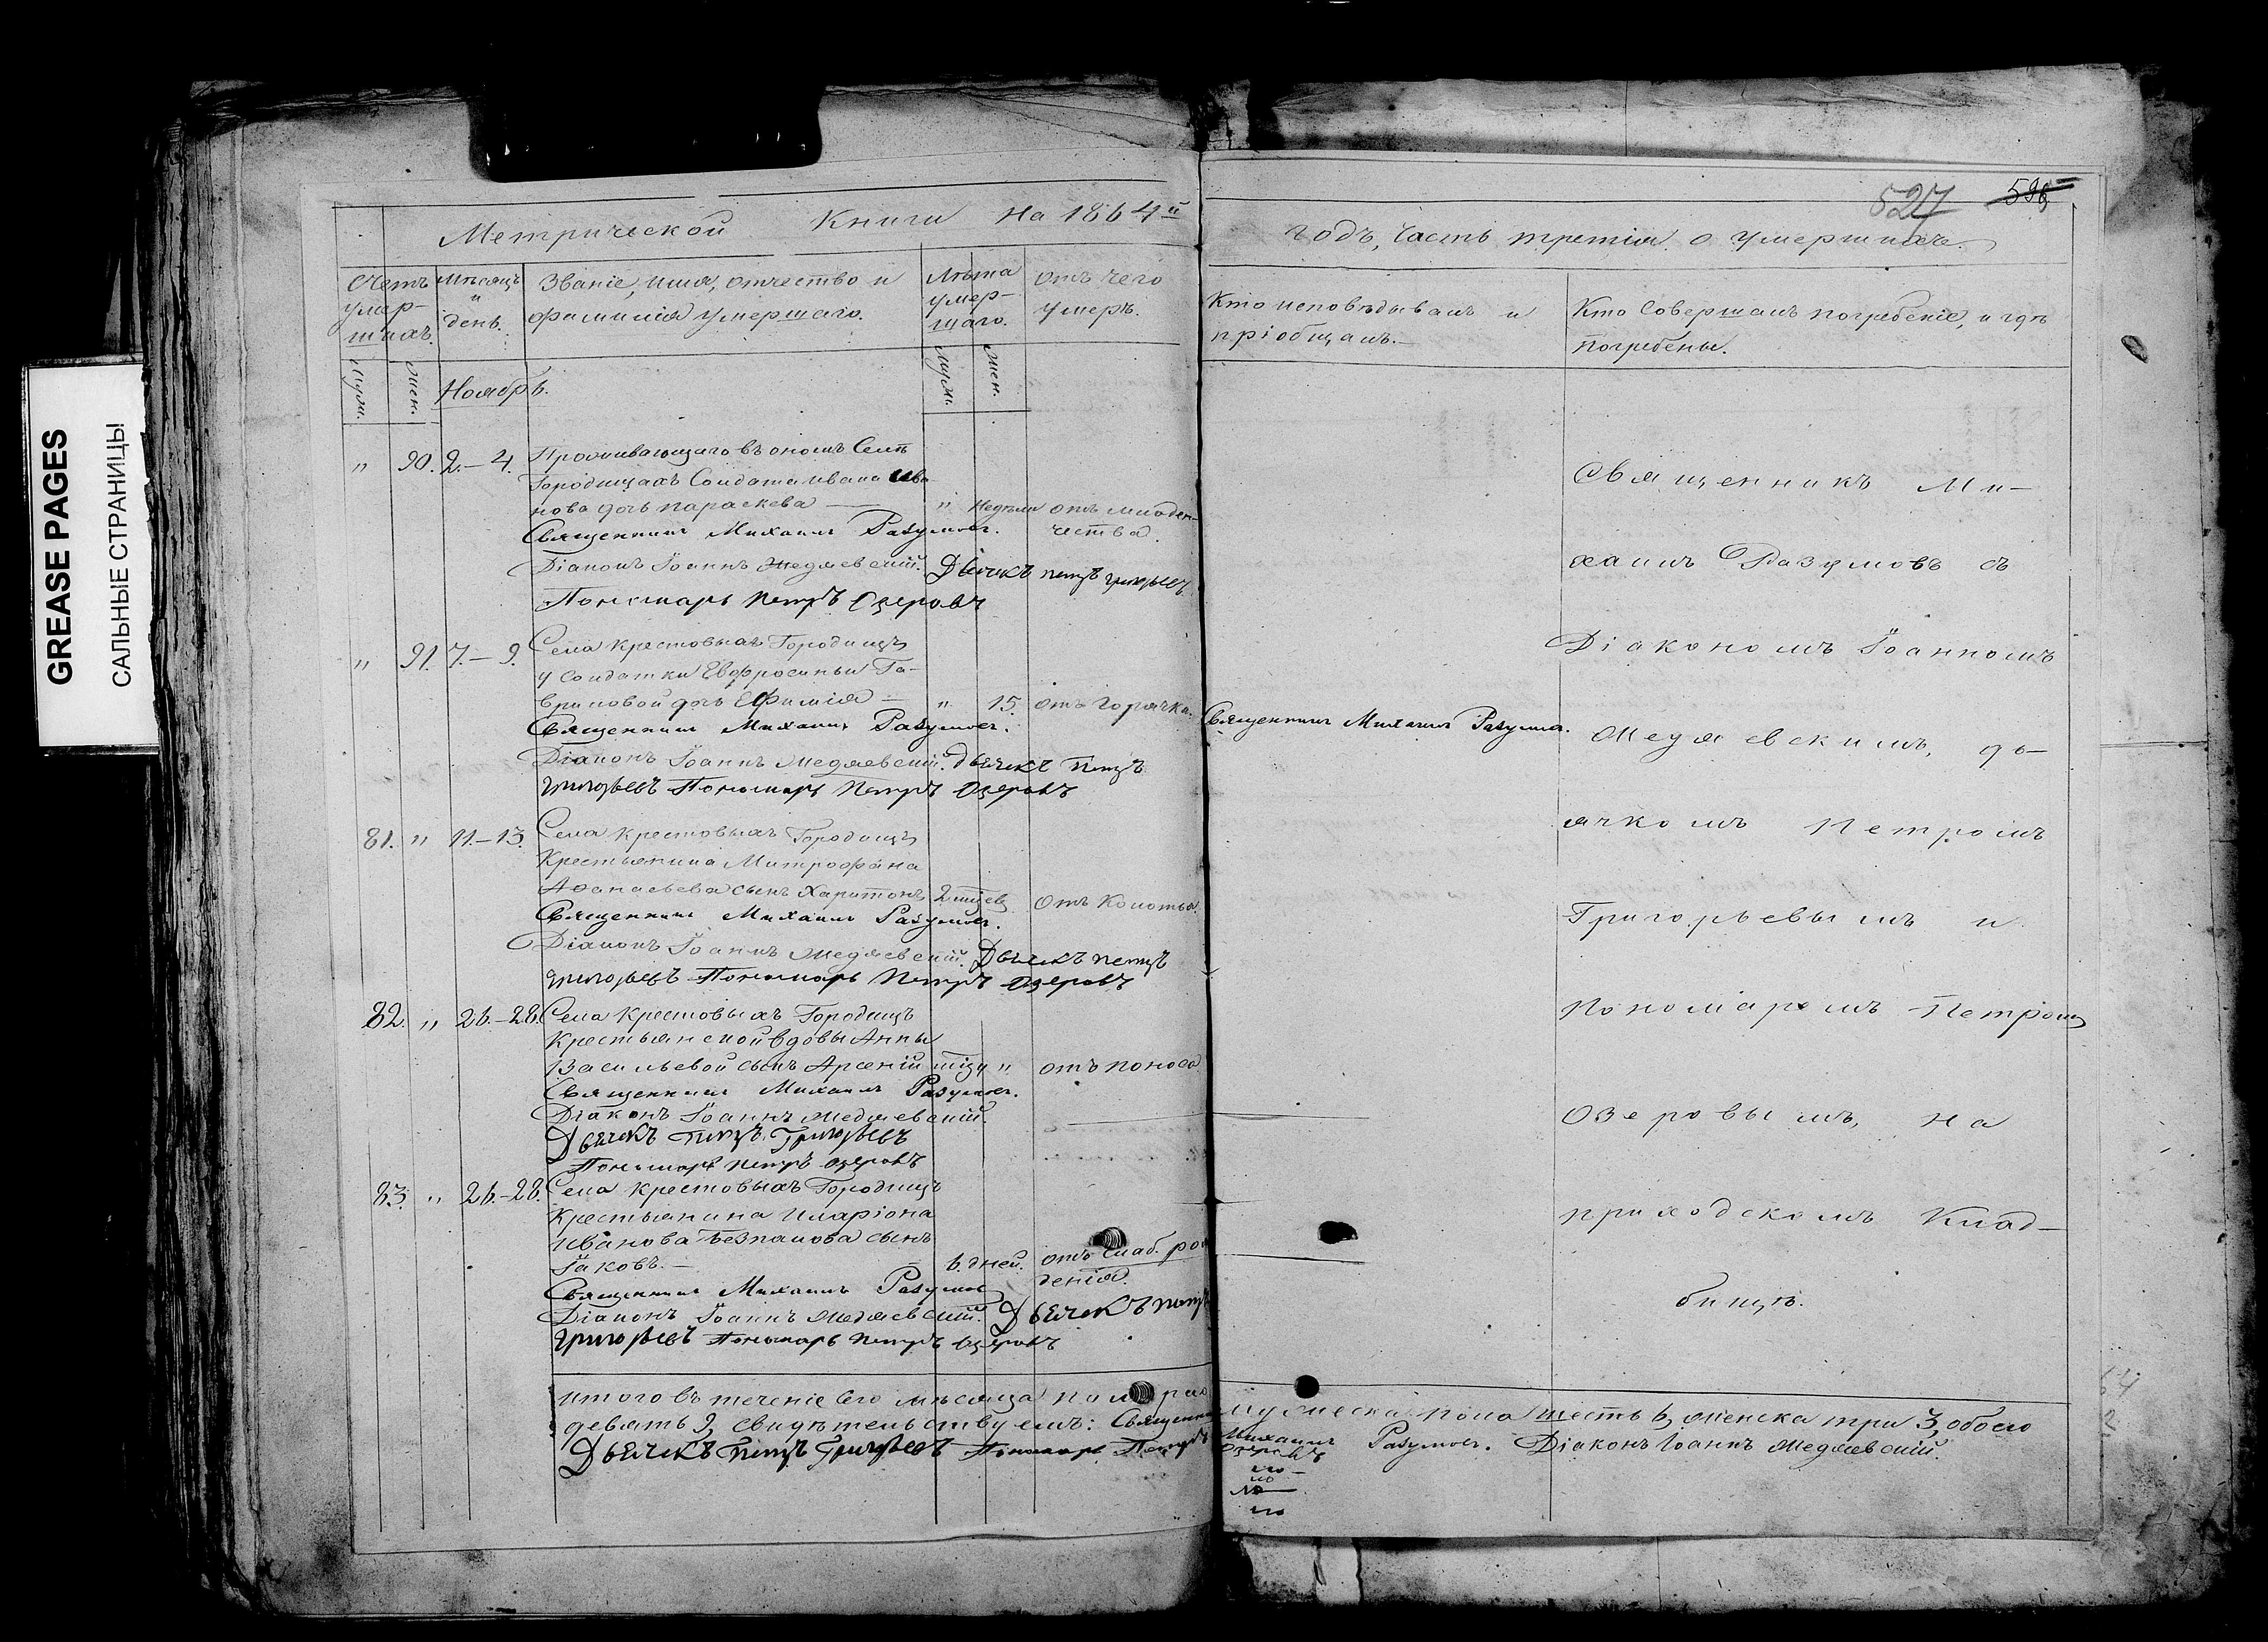 GREASE PAGES
САЛЬНЫЕ СТРАНИЦЫ
Метрической Книги на 1864й
Счетъ умершихъ.
Мѣсяцъ и день.
Званіе, имя, отчество и фамилія умершаго.
Лѣта умершаго.
отъ чего умеръ.
Муж.
Жен.
Ноябрь.
Муж.
Жен.
" 90. 2.–4. Проживающаго въ ономъ Селѣ
Городищахъ Солдата Ивана Ива-
нова дочь Параскева — " Недѣли отъ младен-
чества.
Священникъ Михаилъ Разумовъ.
Діаконъ Іоаннъ Медяевскій. Дьячекъ Петръ Григорьевъ
Пономарь Петръ Озеровъ
" 91. 7.–9. Села Крестовыхъ Городищъ
у Солдатки Евфросиньи Га-
вриловой дочь Ефимія — " 15. отъ горячки.
Священникъ Михаилъ Разумовъ.
Діаконъ Іоаннъ Медяевскій. Дьячекъ Петръ
Григорьевъ Пономарь Петръ Озеровъ
81. " 11.–13. Села Крестовыхъ Городищъ
Крестьянина Митрофана
Аѳанасьева сынъ Харитонъ 2 отъ Колотья.
Священникъ Михаилъ Разумовъ.
Діаконъ Іоаннъ Медяевскій. Дьячекъ Петръ
Григорьевъ Пономарь Петръ Озеровъ
82. " 26.–28. Села Крестовыхъ Городищъ
Крестьянской вдовы Анны
Васильевой сынъ Арсеній " отъ поноса
Священникъ Михаилъ Разумовъ.
Діаконъ Іоаннъ Медяевскій.
Дьячекъ Петръ Григорьевъ
Пономарь Петръ Озеровъ
83. " 26.–28. Села Крестовыхъ Городищъ
Крестьянина Иларіона
Иванова сынъ
Іаковъ. — 6. дней. отъ слаб. рож
денія.
Священникъ Михаилъ Разумов
Діаконъ Іоаннъ Медяевскій. Дьячекъ Петръ
Григорьевъ Пономарь Петръ Озеровъ
527 596
годъ, Часть третія о умершихъ.
Кто исповѣдывалъ и пріобщалъ.
Кто Совершалъ погребеніе, и гдѣ погребены.
Священникъ Михаилъ Разумов.
Священникъ Ми-
хаилъ Разумовъ съ
Діакономъ Іоанномъ
Медяевскимъ, дь-
ячкомъ Петромъ
Григорьевымъ и
Пономаремъ Петромъ
Озеровымъ, на
приходскомъ Клад-
бищѣ.
итого въ теченіе Сего мѣсяца померло мужеска пола шесть 6, женска три 3, обоего
девять 9, свидѣтельствуемъ: Священник Михаилъ Разумовъ. Діаконъ Іоаннъ Медяевскій.
Дьячекъ Петръ Григорьевъ Пономарь Петръ Озеровъ